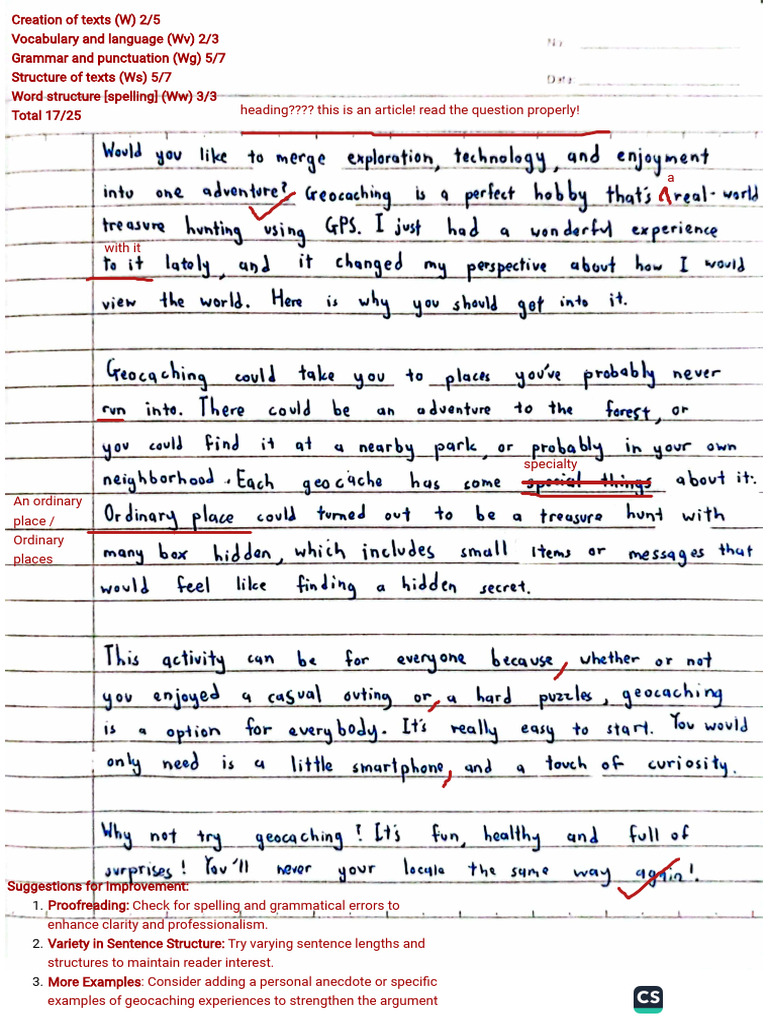 Creation of texts (W) 2/5
Vocabulary and language (Wv) 2/3
Grammar and punctuation (Wg) 5/7
Structure of texts (Ws) 5/7
Word structure [spelling] (Ww) 3/3
Total 17/25
No
Date
heading???? this is an article! read the question properly!
Would you like to merge exploration, technology, and enjoyment
into one adventure? Geocaching is a perfect hobby that's real-world
a
treasure hunting using GPS. I just had a wonderful experience
with it
to it lately, and it changed my perspective about how I would
view the world. Here is why you should got into it.
Geocaching could take you to places you've probably never
run into. There could be an adventure to the forest, or
you could find it at a nearby park, or probably in your own
specialty
neighborhood. Each geocache has some special things about it.
An ordinary
place /
Ordinary
places
Ordinary place could turned out to be a treasure hunt with
many box hidden, which includes small items or messages that
would feel like finding a hidden secret.
This activity can be for everyone because, whether or not
you enjoyed a casual outing or, a hard puzzles, geocaching
is a option for everybody. It's really easy to start. You would
only need is a little smartphone, and a touch of curiosity.
Why not try geocaching? It's fun, healthy and full of
surprises! You'll never your locale the same way again!
Suggestions for Improvement:
1. Proofreading: Check for spelling and grammatical errors to
enhance clarity and professionalism.
2. Variety in Sentence Structure: Try varying sentence lengths and
structures to maintain reader interest.
3. More Examples: Consider adding a personal anecdote or specific
examples of geocaching experiences to strengthen the argument
CS